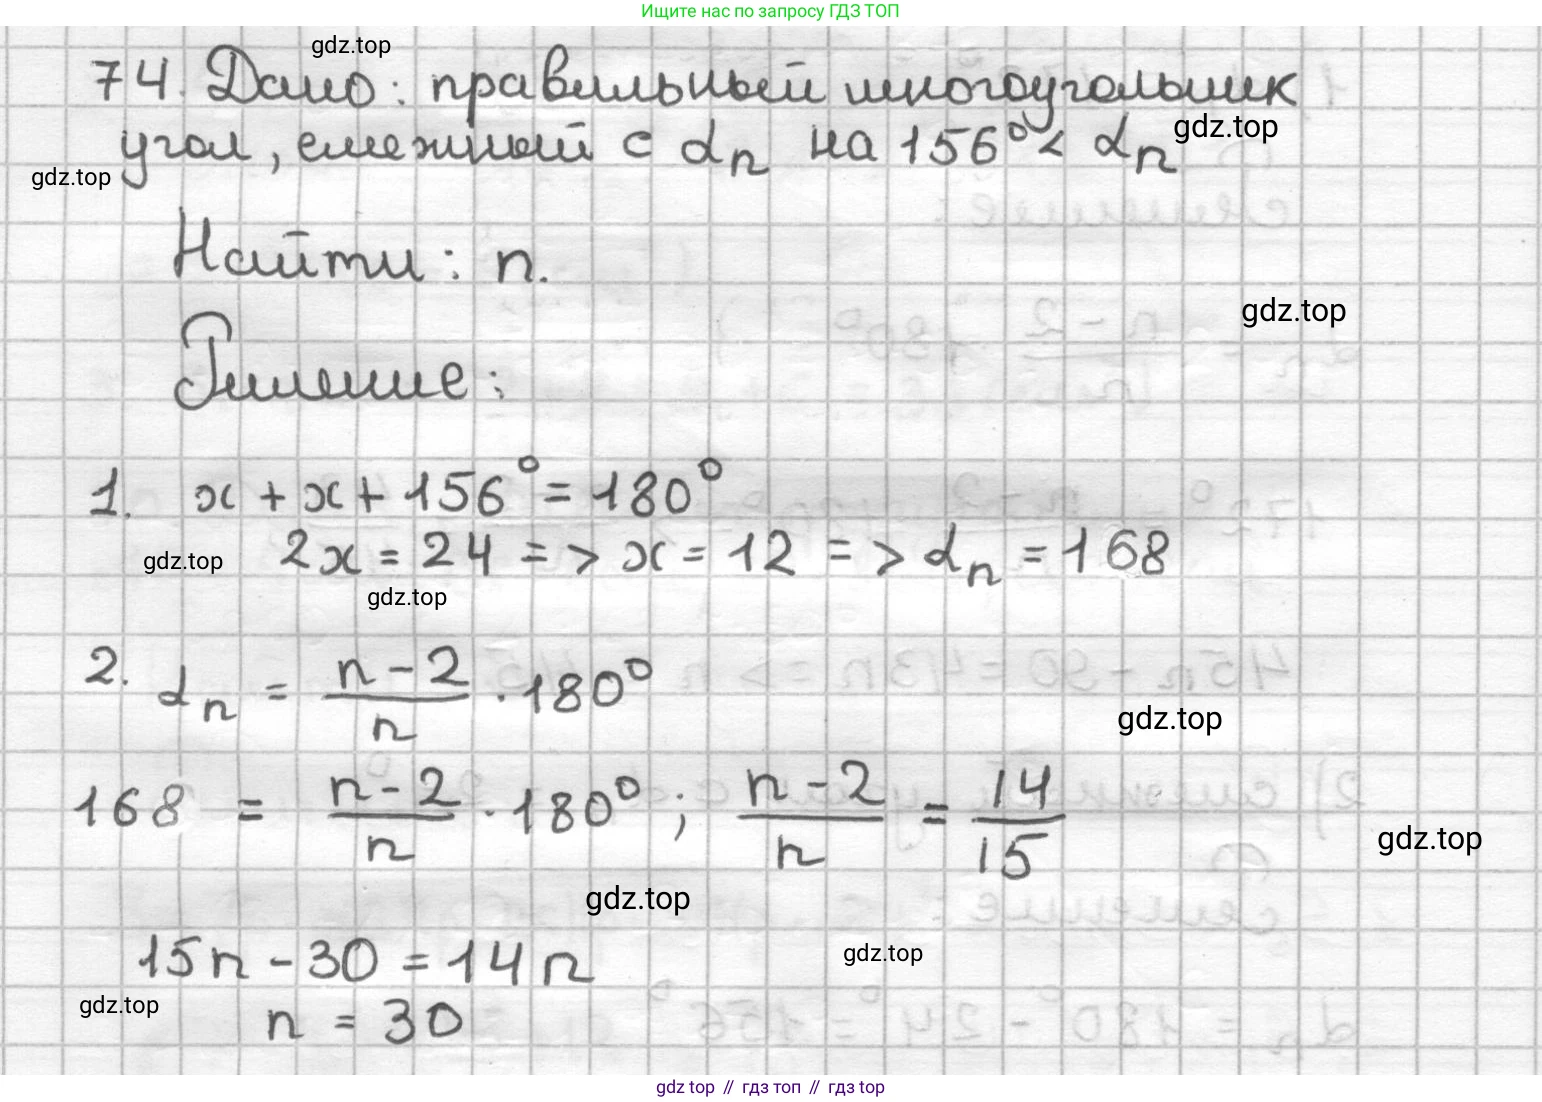 Ищите нас по запросу ГДЗ ТОП
gdz.top
74. Дано: правильный многоугольник
угол, смежный с αn на 156° < αn
gdz.top
gdz.top
Найти: n.
gdz.top
Решение:
1. x + x + 156° = 180°
2x = 24 => x = 12 => αn = 168
gdz.top
gdz.top
2. αn = (n - 2)/n · 180°
gdz.top
168 = (n - 2)/n · 180° ; (n - 2)/n = 14/15
gdz.top
gdz.top
15n - 30 = 14n
gdz.top
gdz.top
n = 30
gdz top // гдз топ // gdz top